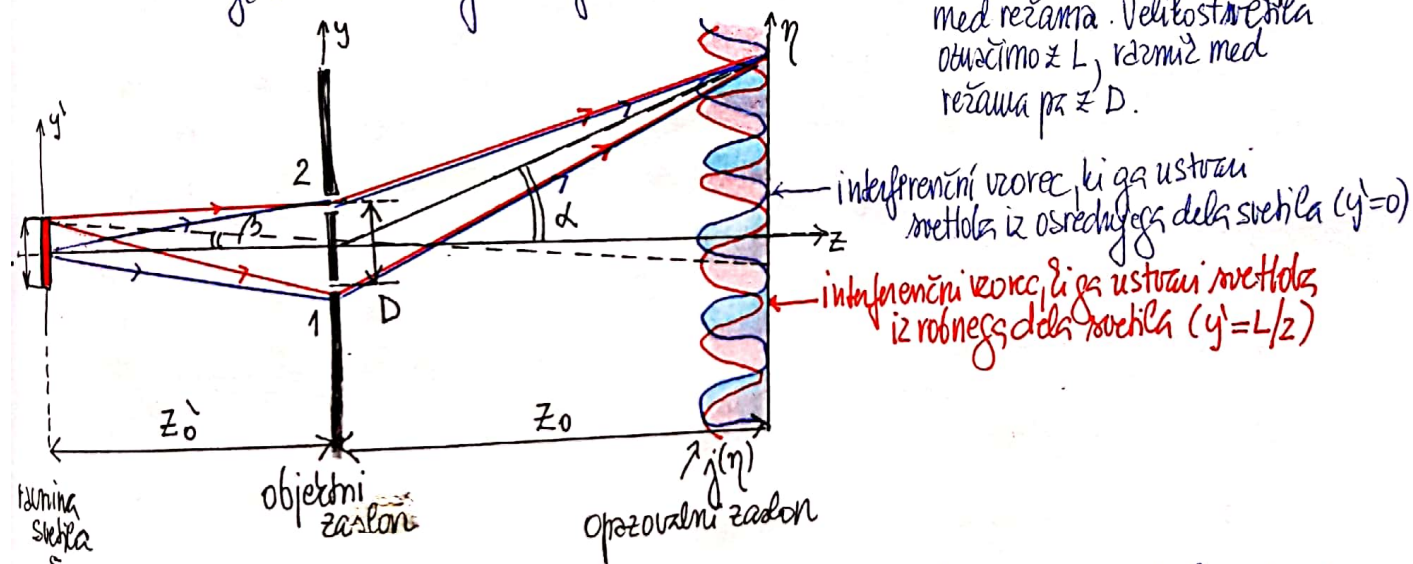 med režama. Velikost svetila
označimo z L, razmik med
režama pa z D.
y
η
y'
2
β
α
z
1
D
interferenčni vzorec, ki ga ustvari
svetloba iz osrednjega dela svetila (y'=0)
interferenčni vzorec, ki ga ustvari svetloba
iz robnega dela svetila (y'=L/2)
z₀'
z₀
j(η)
ravnina
svetila
objektni
zaslon
opazovalni zaslon